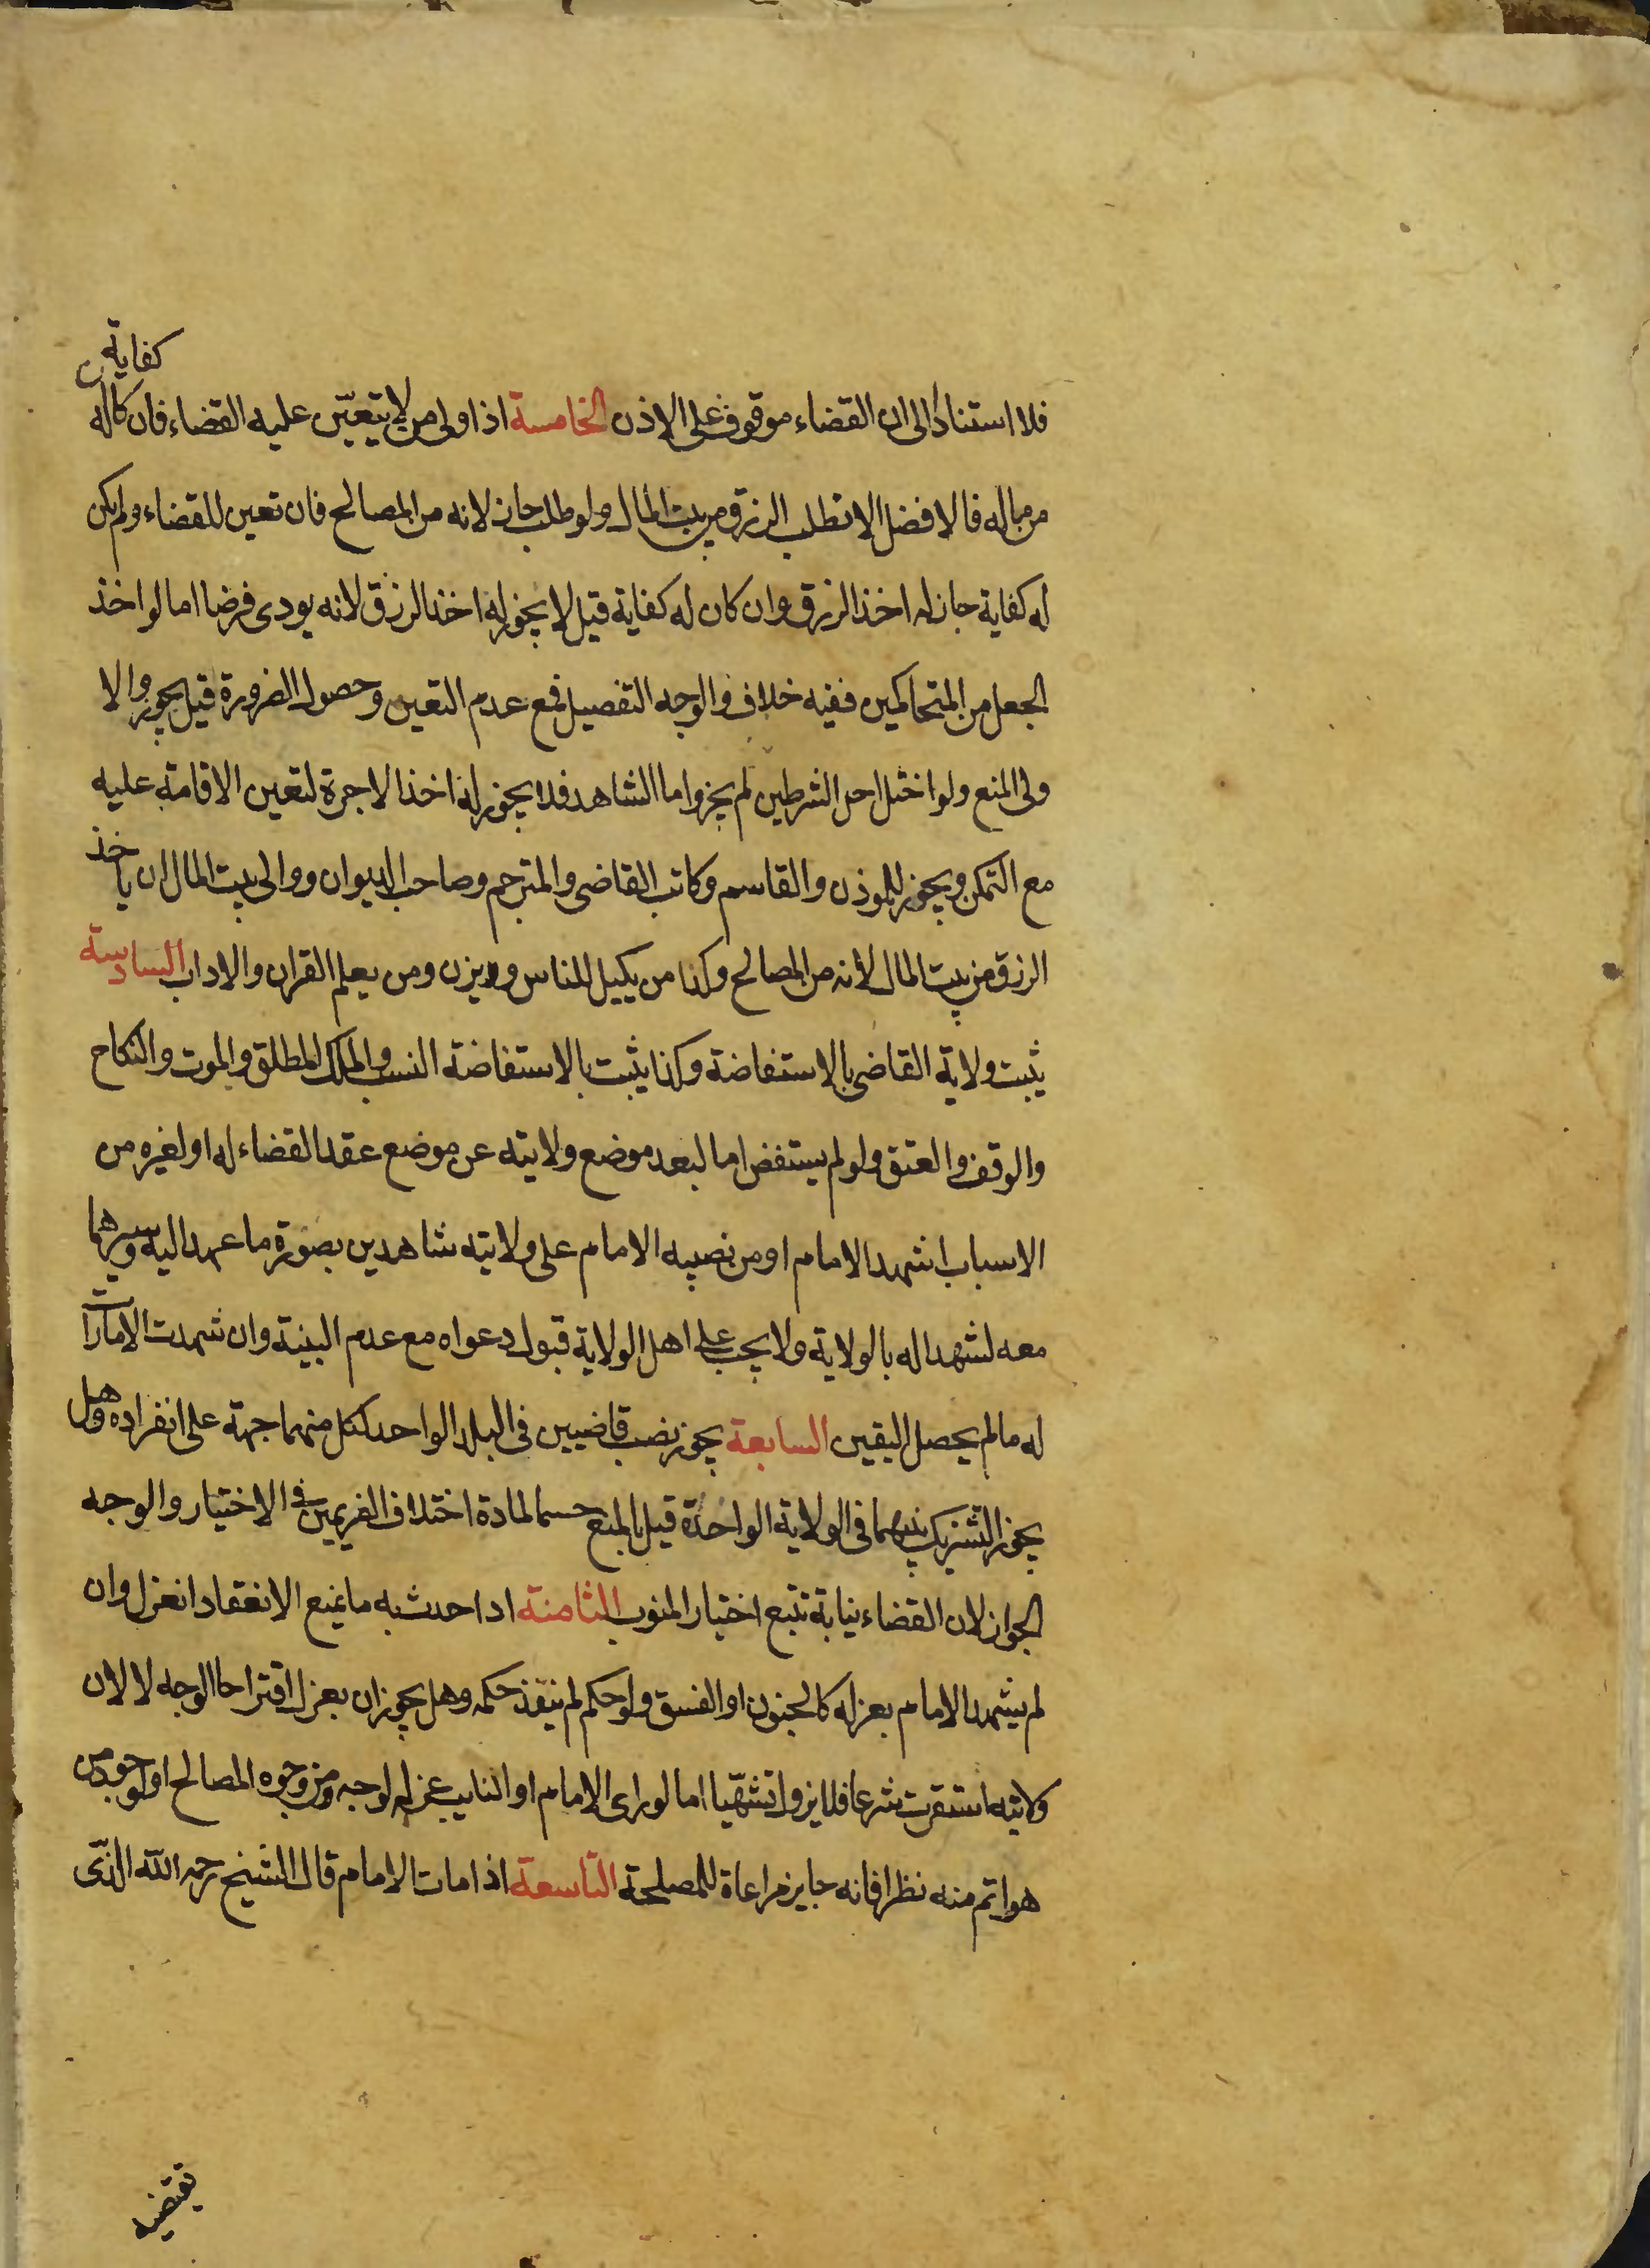 كفاية
فلا استنادا الى ان القضاء موقوف على الاذن الخامسة اذا ولى من لا يتعين عليه القضاء فان كان له
من ماله فالافضل الا تطلب الرزق من بيت المال ولو طلب جاز لانه من المصالح فان تعين للقضاء ولم يكن
له كفاية جاز له اخذ الرزق وان كان له كفاية قيل لا يجوز له اخذ الرزق لانه يودى فرضا اما لو اخذ
الجعل من المتحاكمين ففيه خلاف والوجه التفصيل فمع عدم التعين وحصول الضرورة قيل يجوز والا
ولى المنع ولو اختل احد الشرطين لم يجز واما الشاهد فلا يجوز له اخذ الاجرة لتعين الاقامة عليه
مع التمكن ويجوز للموذن والقاسم وكاتب القاضى والمترجم وصاحب الديوان ووالى بيت المال ان ياخذ
الرزق من بيت المال لانه من المصالح وكذا من يكيل للناس ويزن ومن يعلم القران والاداب السادسة
يثبت ولاية القاضى بالاستفاضة وكذا يثبت بالاستفاضة النسب والملك المطلق والموت والنكاح
والوقف والعتق ولو لم يستفض اما لبعد موضع ولايته عن موضع عقد القضاء له او لغيره من
الاسباب اشهد الامام او من نصبه الامام على ولايته شاهدين بصورة ما عهد اليه وسيرهما
معه لشهدا له بالولاية ولا يجب على اهل الولاية قبول دعواه مع عدم البينة وان شهدت الامارات
له ما لم يحصل اليقين السابعة يجوز نصب قاضيين فى البلد الواحد لكل منهما جهة على انفراده وهل
يجوز التشريك بينهما فى الولاية الواحدة قيل بالمنع حسما لمادة اختلاف الغريمين فى الاختيار والوجه
الجواز لان القضاء نيابة تتبع اختيار المنوب الثامنة اذا حدث به ما يمنع الانعقاد انعزل وان
لم يشهد الامام بعزله كالجنون او الفسق ولو حكم لم ينفذ حكمه وهل يجوز ان يعزل اقتراحا الوجه لا لان
ولايته استقرت شرعا فلا يزول تشهّيا اما لو راى الامام او النايب عزله لوجه من وجوه المصالح او لوجود من
هو اتم منه نظرا فانه جايز مراعاة للمصلحة التاسعة اذا مات الامام قال الشيخ رحمه الله الذى
يقتضيه